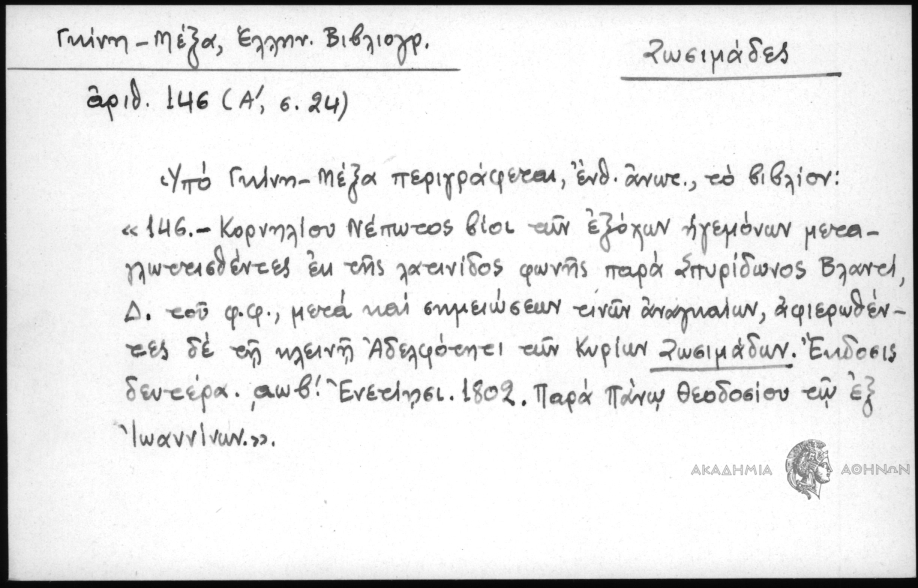 Γκίνη - Μέξα, Ἑλλην. Βιβλιογρ.
Ζωσιμάδες
ἀριθ. 146 (Α', σ. 24)
Ὑπό Γκίνη - Μέξα περιγράφεται, ἔνθ. ἀνωτ., τό βιβλίον:
«146.- Κορνηλίου Νέπωτος βίοι τῶν ἐξόχων ἡγεμόνων μετα-
γλωττισθέντες ἐκ τῆς λατινίδος φωνῆς παρά Σπυρίδωνος Βλαντῆ,
Δ. τοῦ φ.φ., μετά καί σημειώσεων τινῶν ἀναγκαίων, ἀφιερωθέν-
τες δέ τῇ κλεινῇ Ἀδελφότητι τῶν Κυρίων Ζωσιμάδων. Ἔκδοσις
δευτέρα. ͵αωβ'. Ἐνετίῃσι. 1802. Παρά Πάνῳ Θεοδοσίου τῷ ἐξ
Ἰωαννίνων.».
ΑΚΑΔΗΜΙΑ ΑΘΗΝΩΝ